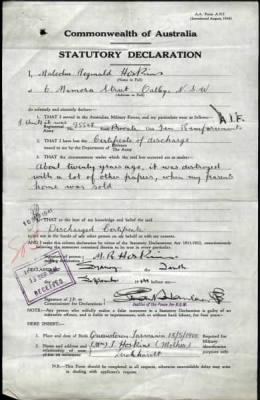 A.A. Form A.91
Commonwealth of Australia
STATUTORY DECLARATION
I, Malcolm Reginald Hoskins
(Name in Full)
of 6 Mimosa Street Oatley N.S.W
(Address in Full)
do solemnly and sincerely declare:
THAT I served in the Australian Military Forces, and my particulars were as follows:
A.I.F.
I think it was
Regimental No. Rank Private Unit Reinforcements
Army
THAT I have lost the Certificate of discharge
issued to me by the Department of Defence
The Army
THAT the circumstances under which the said loss occurred are as under:
About twenty years ago, it was destroyed
with a lot of other papers, when my parents
home was sold
THAT to the best of my knowledge and belief the said
Discharged Certificate
is not in the hands of any other person on my behalf or with my consent.
AND I make this solemn declaration by virtue of the Statutory Declarations Act 1911-1922, conscientiously believing the statements contained therein to be true in every particular.
Signature of person making declaration M.R. Hoskins
DECLARED at Sydney the Tenth
day of September
RECEIVED
Signature of J.P. or Commissioner for Declarations
Justice of the Peace for N.S.W.
NOTE.—Any person who wilfully makes a false statement in a Statutory Declaration is guilty of an indictable offence, and is liable to imprisonment, with or without hard labour, for four years.
HERE INSERT:
1. Place and date of Birth Queenstown Tasmania
2. Name and address and relationship of person (Mrs) S. Hoskins (Mother)
Leichhardt
Required for Military identification purposes.
NOTE.—This Form should be completed in all respects, otherwise unavoidable delay may arise in dealing with applicant's request.